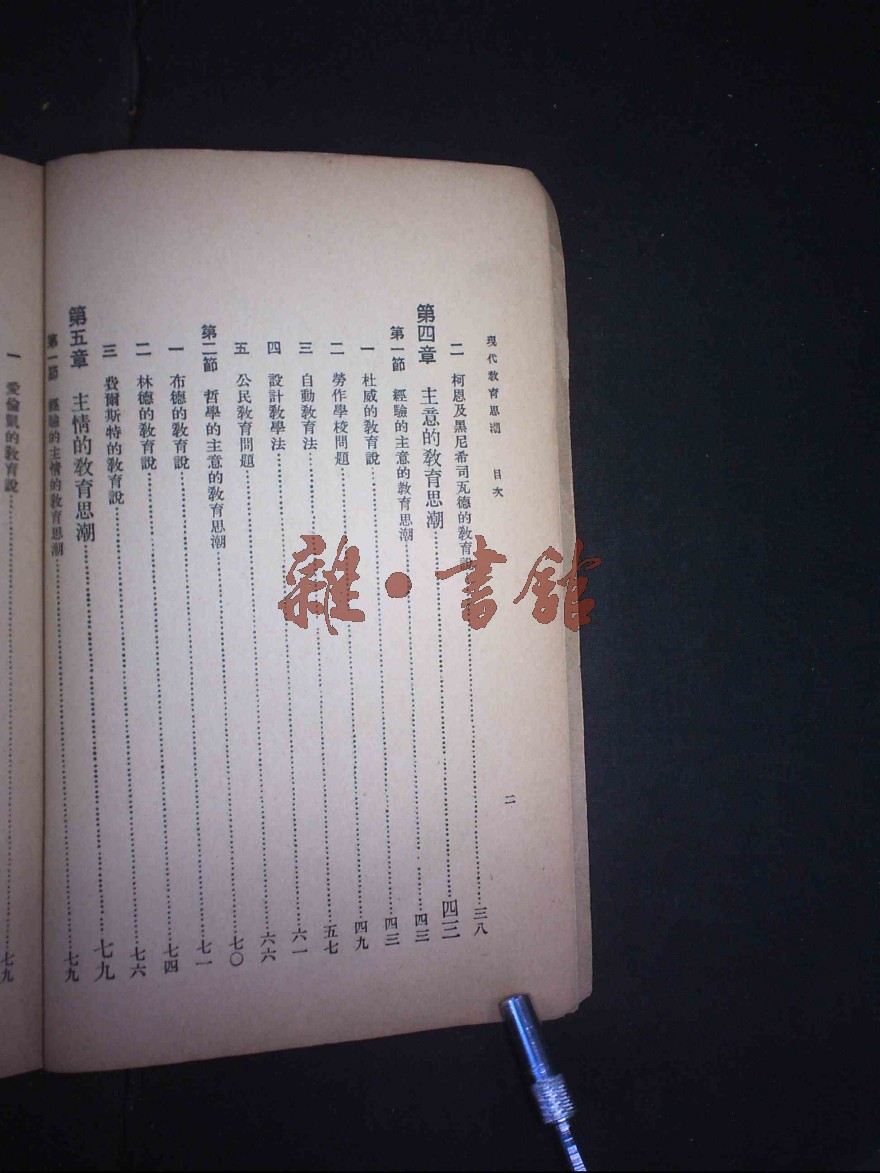 現代教育思潮　目次
二
二　柯恩及黑尼希司瓦德的教育說……三八
第四章　主意的教育思潮……四三
第一節　經驗的主意的教育思潮……四三
一　杜威的教育說……四九
二　勞作學校問題……五七
三　自動教育法……六一
四　設計教學法……六六
五　公民教育問題……七〇
第二節　哲學的主意的教育思潮……七一
一　布德的教育說……七四
二　林德的教育說……七六
三　費爾斯特的教育說
第五章　主情的教育思潮……七九
第一節　經驗的主情的教育思潮……七九
一　愛倫凱的教育說……七九
雜·書館